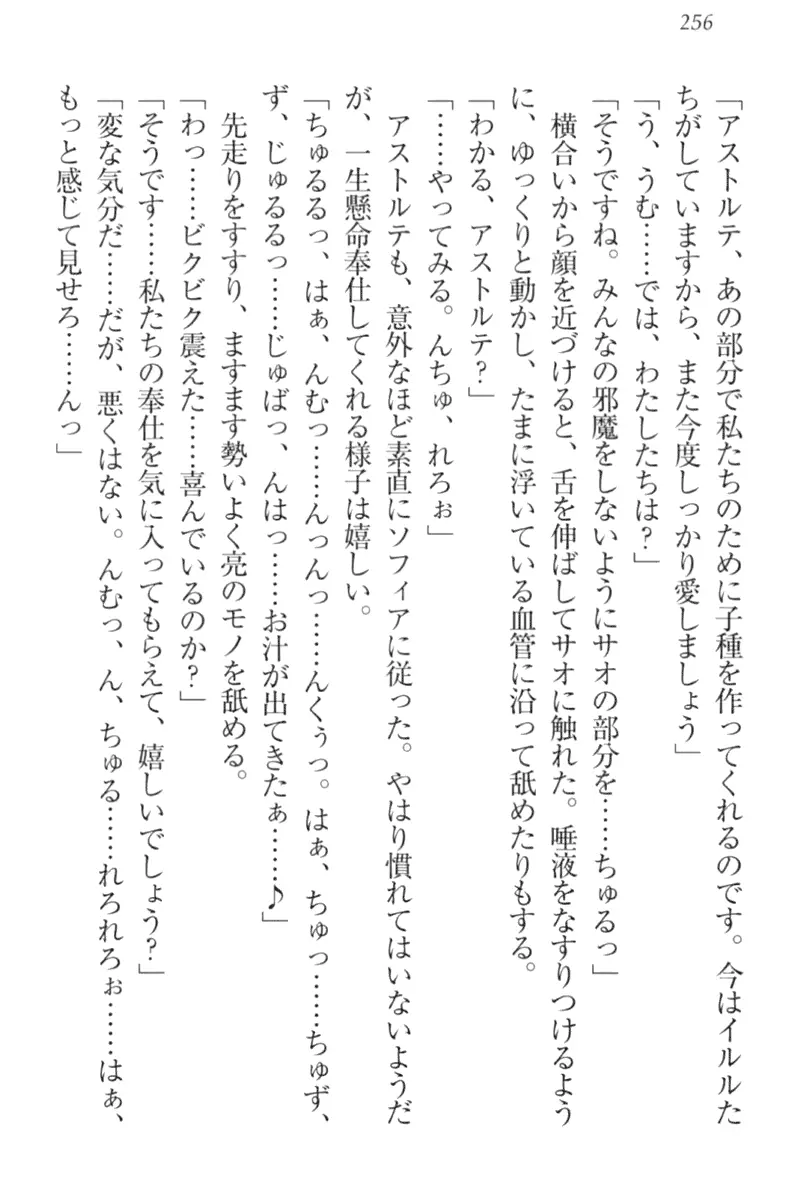 256
「アストルテ、あの部分で私たちのために子種を作ってくれるのです。今はイルルた
ちがしていますから、また今度しっかり愛しましょう」
「う、うむ……では、わたしたちは?」
「そうですね。みんなの邪魔をしないようにサオの部分を……ちゅるっ」
　横合いから顔を近づけると、舌を伸ばしてサオに触れた。唾液をなすりつけるよう
に、ゆっくりと動かし、たまに浮いている血管に沿って舐めたりもする。
「わかる、アストルテ?」
「……やってみる。んちゅ、れろぉ」
　アストルテも、意外なほど素直にソフィアに従った。やはり慣れてはいないようだ
が、一生懸命奉仕してくれる様子は嬉しい。
「ちゅるるっ、はぁ、んむっ……んっんっ……んくぅっ。はぁ、ちゅっ……ちゅず、
ず、じゅるるっ……じゅばっ、んはっ……お汁が出てきたぁ……♪」
　先走りをすすり、ますます勢いよく亮のモノを舐める。
「わっ……ビクビク震えた……喜んでいるのか?」
「そうです……私たちの奉仕を気に入ってもらえて、嬉しいでしょう?」
「変な気分だ……だが、悪くはない。んむっ、ん、ちゅる……れろれろぉ……はぁ、
もっと感じて見せろ……んっ」